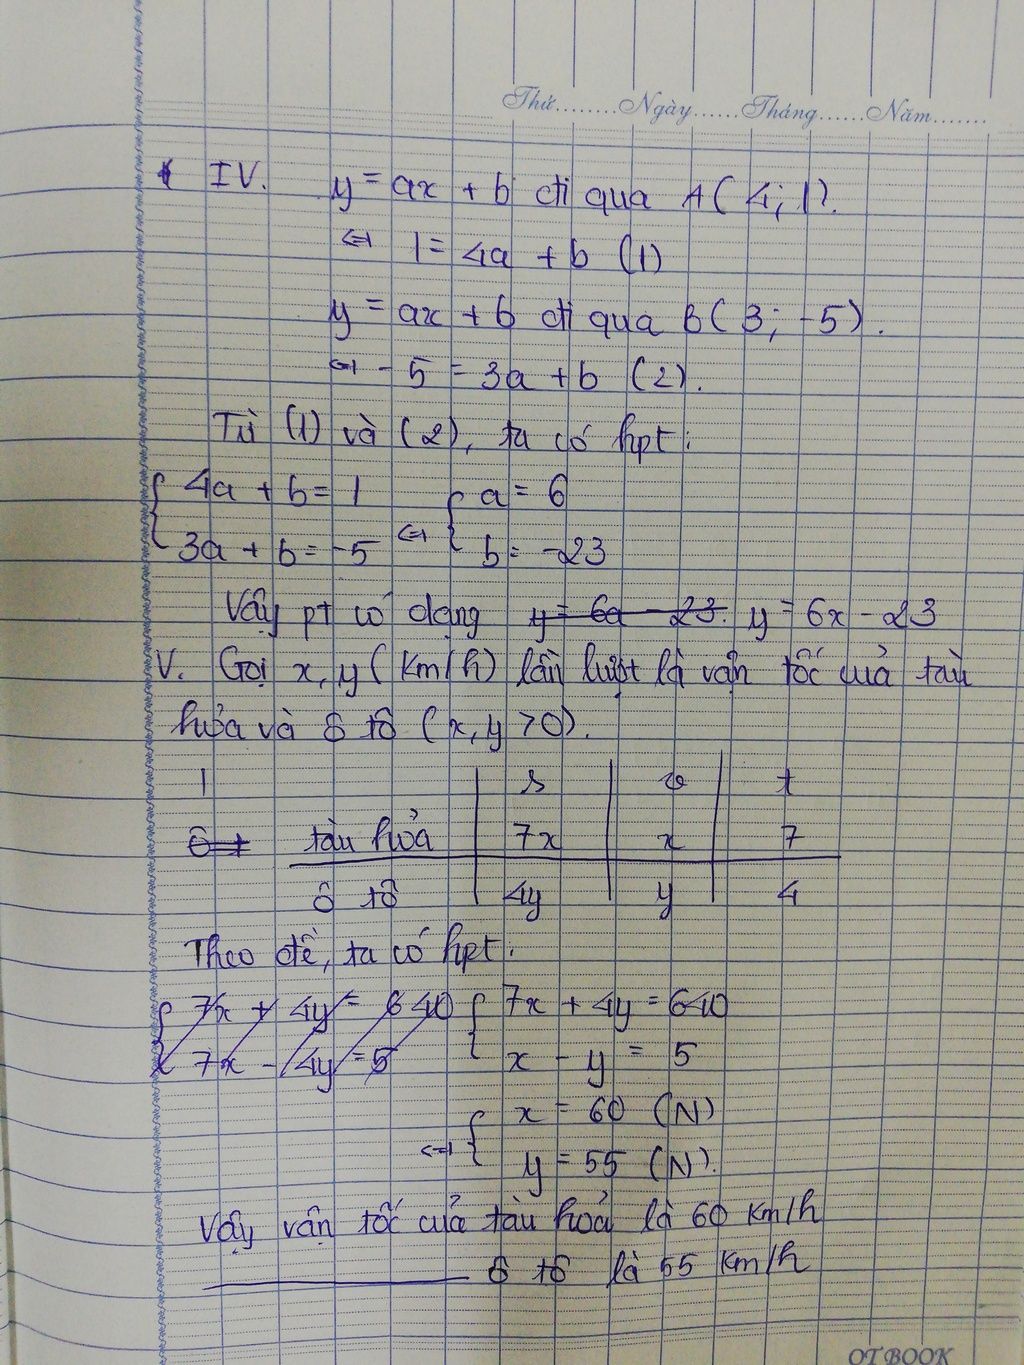 Thứ........Ngày......Tháng......Năm.......
IV. y = ax + b đi qua A( 4; 1).
<=> 1 = 4a + b (1)
y = ax + b đi qua B( 3; -5).
<=> - 5 = 3a + b (2).
Từ (1) và (2), ta có hpt:
{ 4a + b = 1 { a = 6
3a + b = -5 <=> b = -23
Vậy pt có dạng y = 6a - 23. y = 6x - 23
V. Gọi x, y ( km/h) lần lượt là vận tốc của tàu
hỏa và ô tô ( x, y > 0).
| s | v | t
ô t tàu hỏa | 7x | x | 7
ô tô | 4y | y | 4
Theo đề, ta có hpt:
{ 7x + 4y = 640 { 7x + 4y = 640
7x - 4y = 5 x - y = 5
<=> { x = 60 (N)
y = 55 (N).
Vậy vận tốc của tàu hoả là 60 km/h
ô tô là 55 km/h
OTBOOK